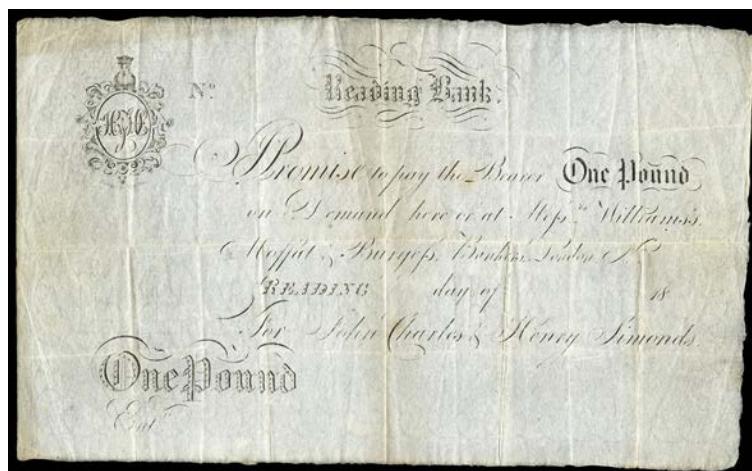 No.
Reading Bank.
I Promise to pay the Bearer One Pound
on Demand here or at Messrs. Williams's
Moffat & Burgess, Bankers, London. No.
READING day of 18
For John Charles & Henry Simonds.
One Pound
Entd.